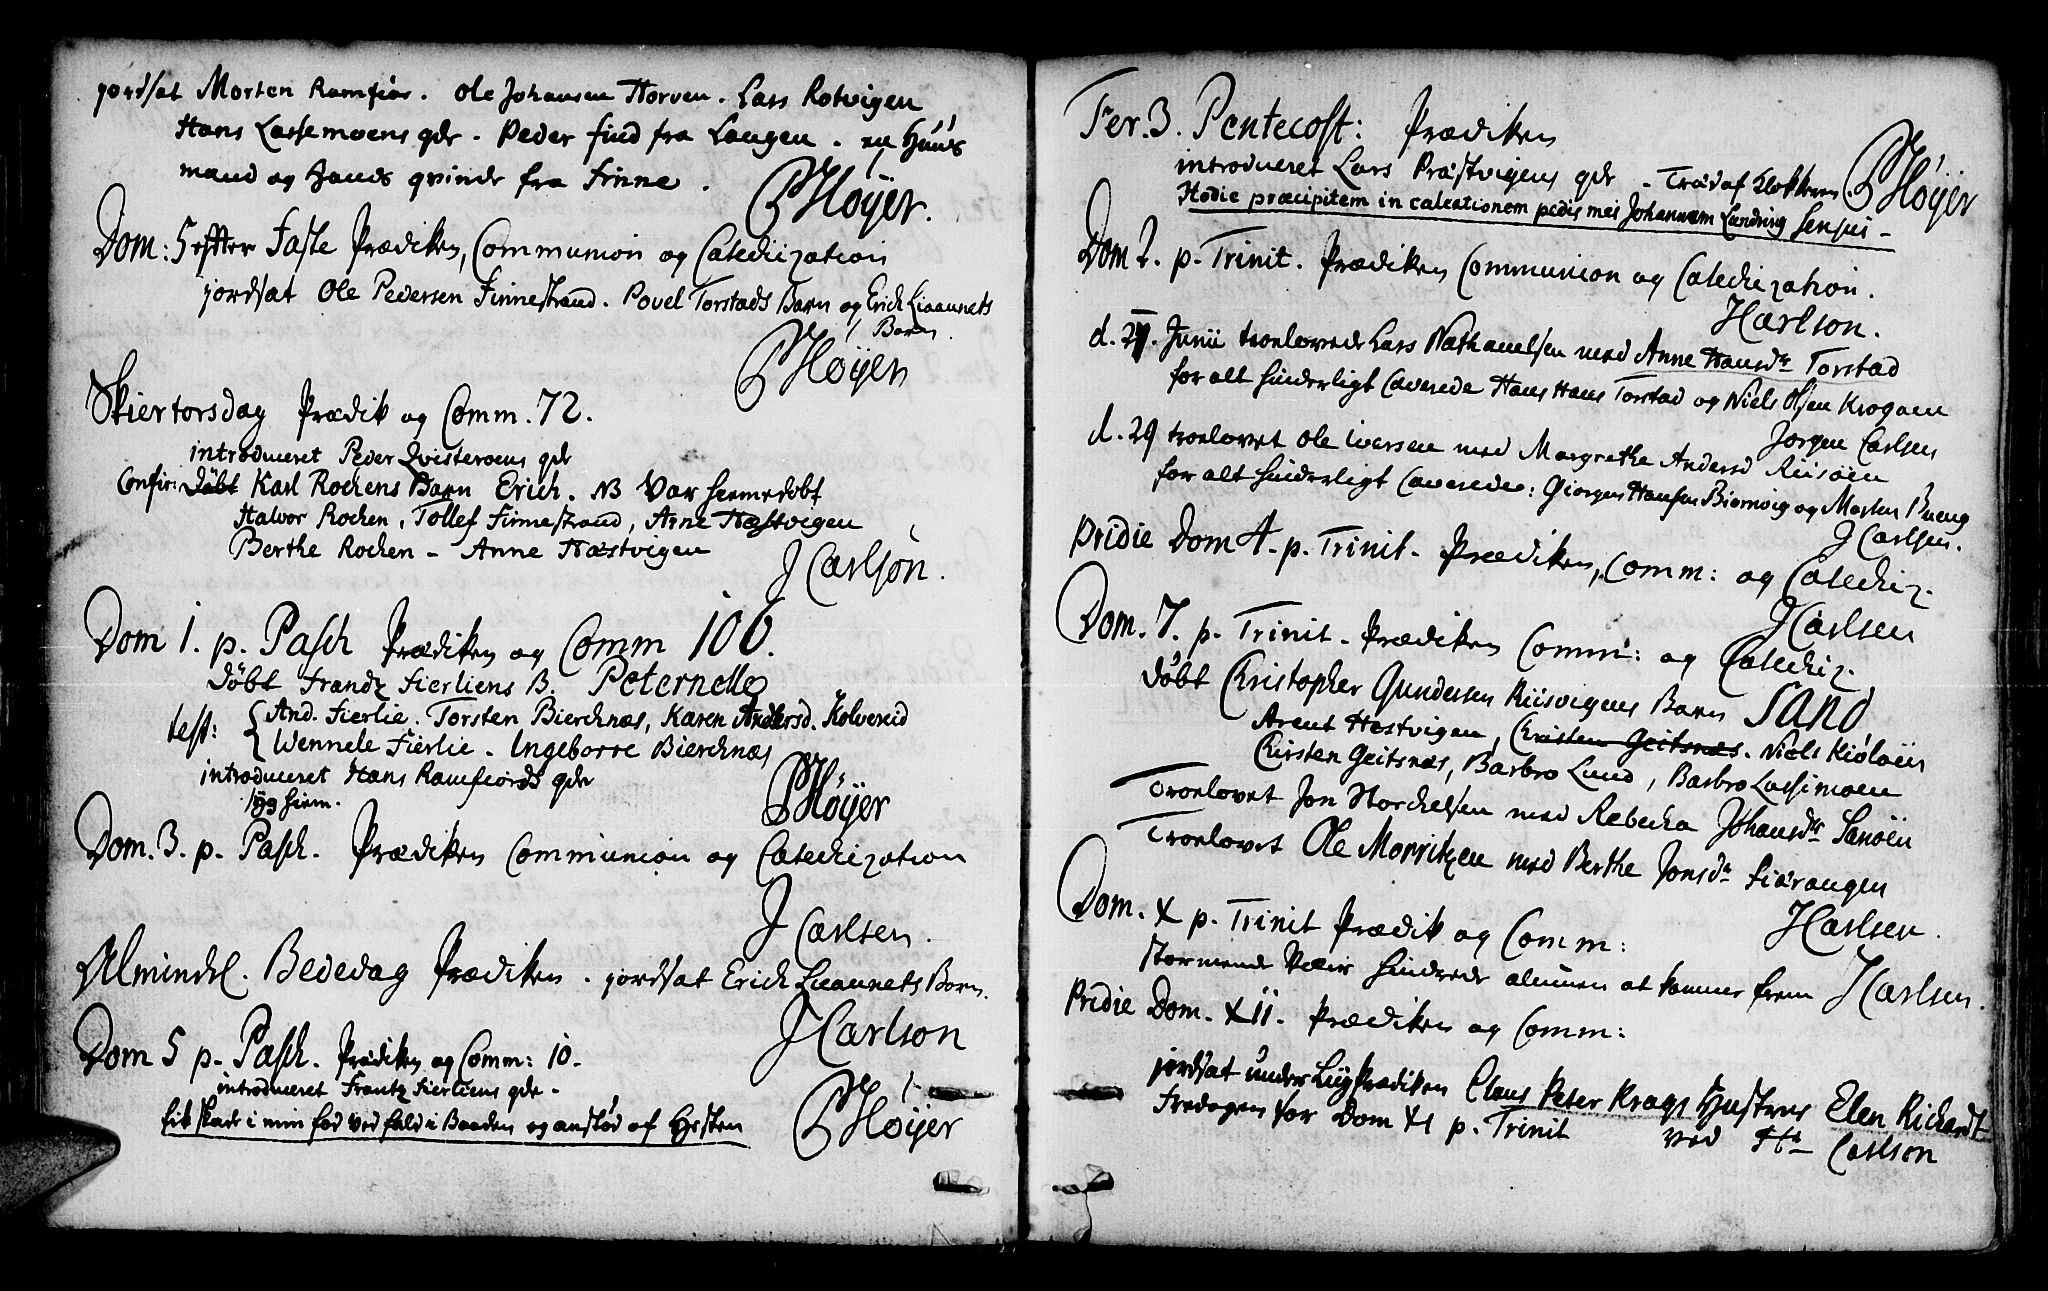 jordsat Morten Ramfiør. Ole Johansen Horven. Lars Rotvigen
Hans Lassemoens qdr. Peder find fra Langen. en Huus
mand og Hands qvinde fra Finne.
P Høÿer.
Dom: 5 effter Faste Prædiken, Communion og Catechization
jordsat Ole Pedersen Finnestrand. Povel Torstads Barn og Erich Liaunets
Barn.
P Høÿer
Skiertorsdag Prædik og Comm. 72.
introdueret Peder Qvisteroens qdr
Confir: Døbt Karl Rochens Barn Erich. NB var hiemedøbt
Halvor Rochen, Tollef Finnestrand, Arne Næstvigen
Berthe Rochen - Anne Næstvigen
J Carlson.
Dom 1. p. Pasch Prædiken og Comm 106.
Døbt Frandz Fierliens B. Peternelle
test: And. Fierlie. Torsten Bierchnæs, Karen Andersd. Kolvereid
Wennele Fierlie. Ingeborre Bierchnæs
introdueret Hans Ramfiords qdr
syg hiem.
P Høÿer
Dom. 3. p. Pasch. Prædiken Communion og Catechization
J Carlsen.
Almindel. Bededag Prædiken. jordsat Erich Liaunets Barn.
J Carlson
Dom 5 p. Pasch. Prædiken og Comm: 10.
introdueret Frantz Fierliens qdr.
fik skade i min fod ved fald i Baaden og anstød af Hesten
P Høÿer
Fer. 3. Pentecost: Prædiken
introdueret Lars Præstvigens qdr - Træd af Klokkeren
P Høÿer
Hodie præcipitem in calcationem pedis mei Johannem Lundring sensui -
Dom 2. p. Trinit. Prædiken Communion og Catechization.
J Carlson.
d. 21. Junii troelovede Lars Nathanelsen med Anne Hansdr Torstad
for alt hinderligt Caverede Hans Hans Torstad og Niels Olsen Krogøen
Jørgen Carlsen
d. 29 troelovet Ole Iversen med Margrethe Andersd Riisøen
for alt hinderligt Caverede: Giørgen Hansen Biørnvig og Morten Bueng
J Carlsen.
Pridie Dom 4. p. Trinit. Prædiken, Comm: og Catechiz.
J Carlsen
Dom. 7. p. Trinit. Prædiken Comm: og Catechiz.
Døbt Christopher Gundersen Riisvigens Barn SAND
Arent Hestvigen, Christen Geitsnæs. Niels Kiøløen
Kirsten Geitsnæs, Barbro Lund, Barbro Lassimoen
Troelovet Jon Storchelsen med Rebecka Johansdr Sanøen
Troelovet Ole Morritzen med Berthe Jonsdr Fiærangen
J Carlsen.
Dom. X p. Trinit Prædik og Comm:
stormende Vær hindrede almuen at komme frem J Carlsen.
Pridie Dom. XII. Prædiken og Comm:
jordsat under Liigprædiken Claus Peter Krags Hustrue Elen Richardt
Fredagen for Dom XI p. Trinit ved Hr Carlson